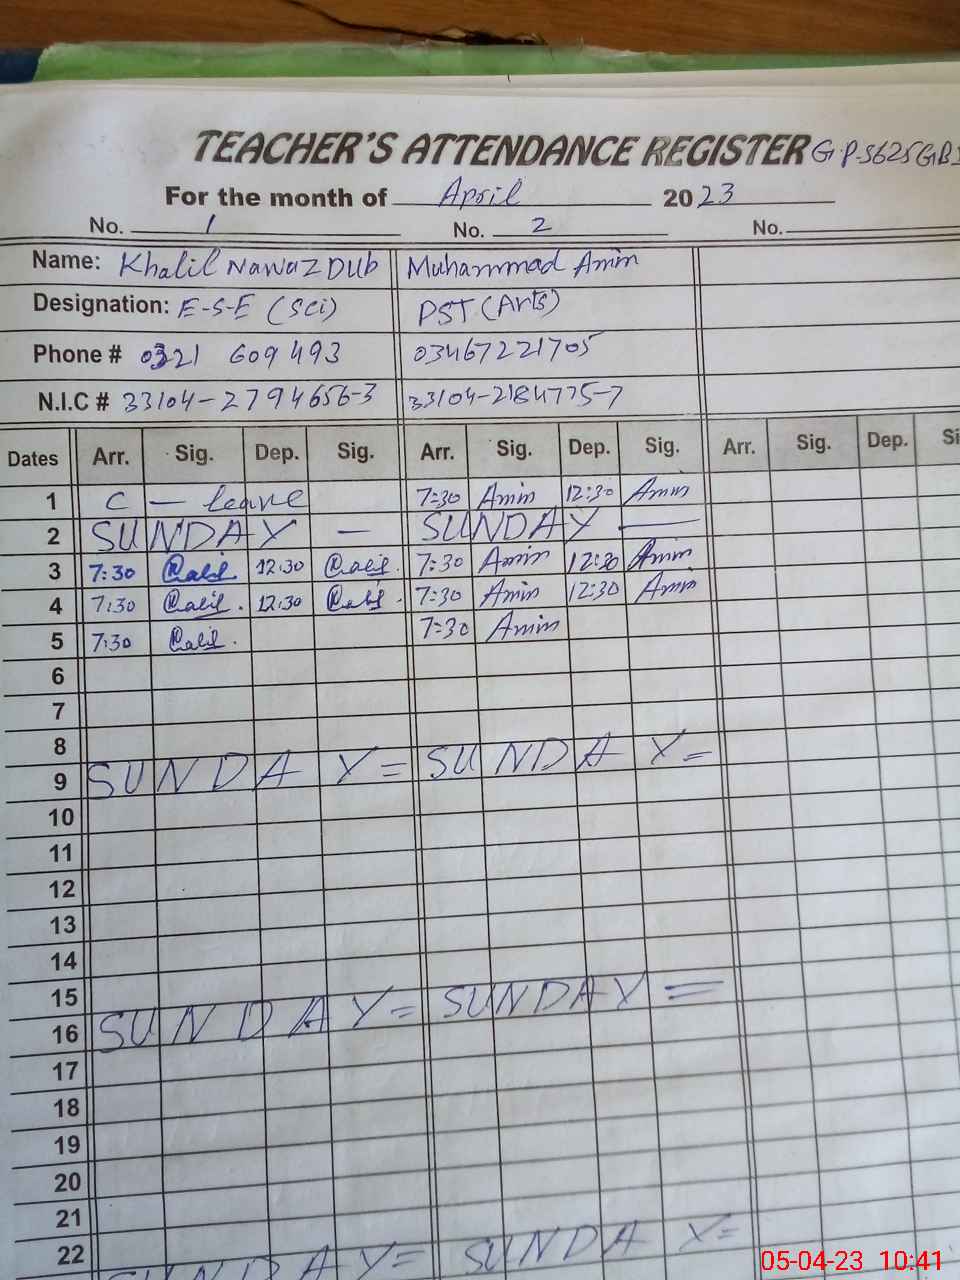 TEACHER'S ATTENDANCE REGISTER G.P.S 625 GB
For the month of April 2023
No. 1 No. 2 No.
Name: Khalil Nawaz Dub Muhammad Amin
Designation: E-S-E (Sci) PST (Arts)
Phone # 0321 609 493 03467221705
N.I.C # 33104-2794656-3 33104-2184775-7
Dates Arr. Sig. Dep. Sig. Arr. Sig. Dep. Sig. Arr. Sig. Dep. Si
1 C — leave 7:30 Amin 12:30 Amin
2 SUNDAY — SUNDAY —
3 7:30 12:30 7:30 Amin 12:30 Amin
4 7:30 12:30 7:30 Amin 12:30 Amin
5 7:30 7:30 Amin
6
7
8
9 SUNDAY = SUNDAY =
10
11
12
13
14
15
16 SUNDAY = SUNDAY =
17
18
19
20
21
22
SUNDAY = SUNDAY =
05-04-23 10:41